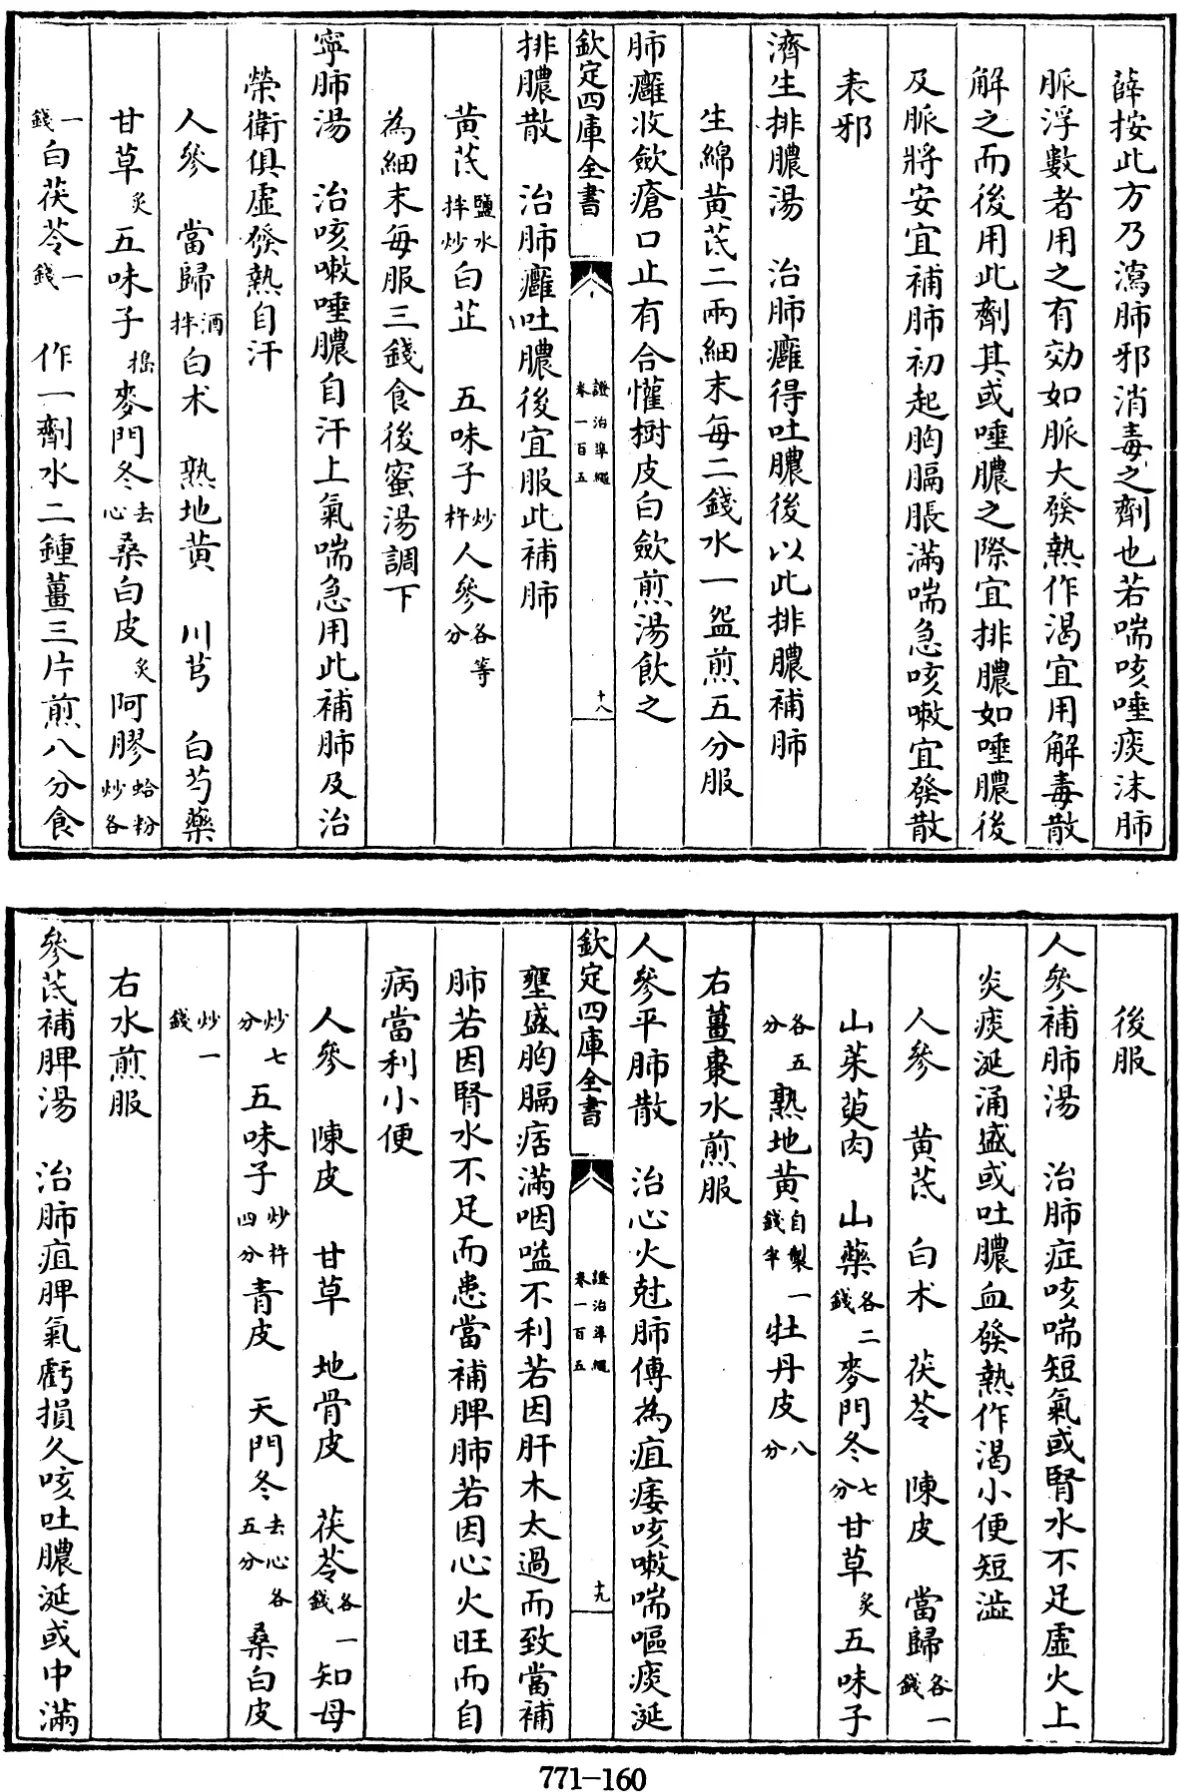 薛按此方乃瀉肺邪消毒之劑也若喘咳唾痰沫肺
脈浮數者用之有効如脈大發熱作渴宜用解毒散
解之而後用此劑其或唾膿之際宜排膿如唾膿後
及脈將安宜補肺初起胸膈脹滿喘急咳嗽宜發散
表邪
濟生排膿湯 治肺癰得吐膿後以此排膿補肺
生綿黃芪二兩細末每二錢水一盌煎五分服
肺癰收歛瘡口止有合懽樹皮白歛煎湯飲之
欽定四庫全書 證治準繩 卷一百五 十八
排膿散 治肺癰吐膿後宜服此補肺
黃芪鹽水拌炒白芷 五味子炒杵人參各等分
為細末每服三錢食後蜜湯調下
寧肺湯 治咳嗽唾膿自汗上氣喘急用此補肺及治
榮衛俱虛發熱自汗
人參 當歸酒拌白术 熟地黃 川芎 白芍藥
甘草炙五味子搗麥門冬去心桑白皮炙阿膠蛤粉炒各
一錢白茯苓一錢 作一劑水二鍾薑三片煎八分食
後服
人參補肺湯 治肺症咳喘短氣或腎水不足虛火上
炎痰涎涌盛或吐膿血發熱作渴小便短澁
人參 黃芪 白术 茯苓 陳皮 當歸各一錢
山茱萸肉 山藥各二錢麥門冬七分甘草炙五味子
各五分熟地黃自製一錢半牡丹皮八分
右薑棗水煎服
人參平肺散 治心火尅肺傳為疽痿咳嗽喘嘔痰涎
欽定四庫全書 證治準繩 卷一百五 十九
壅盛胸膈痞滿咽嗌不利若因肝木太過而致當補
肺若因腎水不足而患當補脾肺若因心火旺而自
病當利小便
人參 陳皮 甘草 地骨皮 茯苓各一錢知母
炒七分五味子炒杵四分青皮 天門冬去心各五分桑白皮
炒一錢
右水煎服
參芪補脾湯 治肺疽脾氣虧損久咳吐膿涎或中滿
771-160